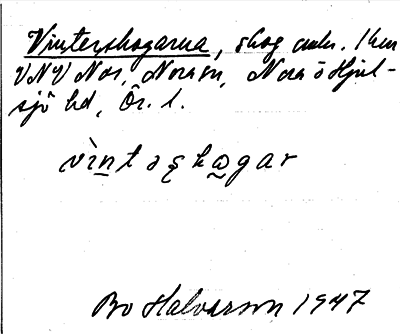 Vinterskogarna, skog omkr. 1 km
VNV Nor, Nora sn, Nora o Hjul-
sjö hd, Ör. l.
vìntəşkagar
Bo Halvarson 1947